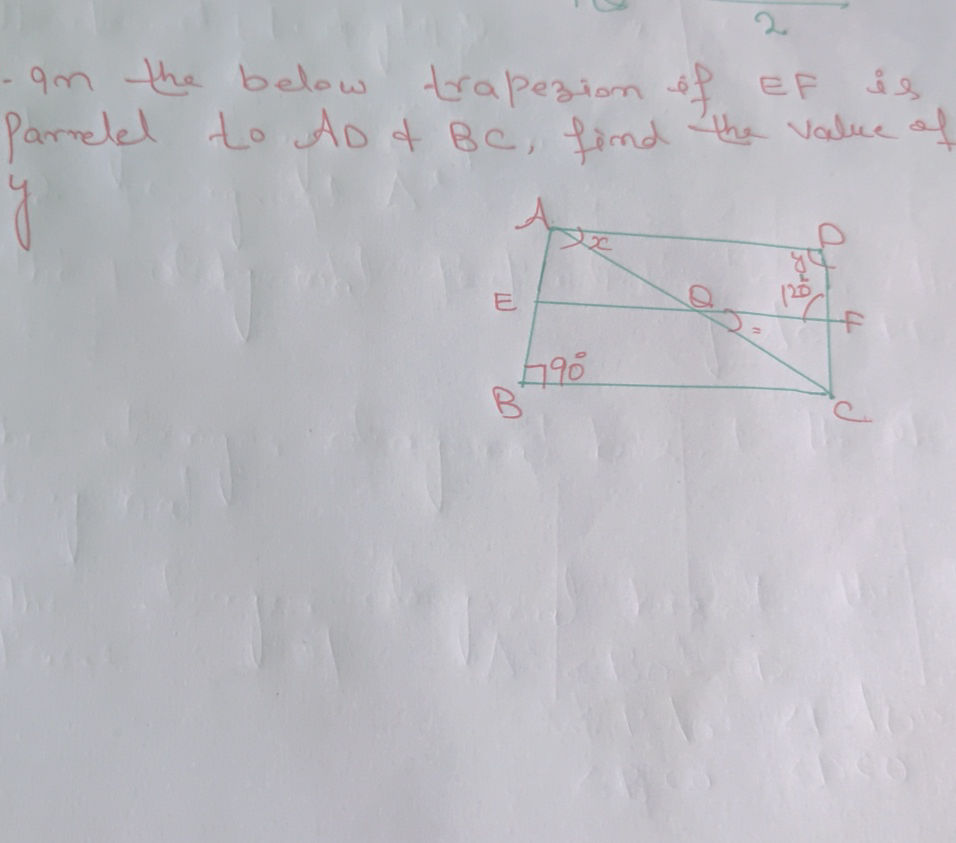 2
- 9n the below trapezion if EF is
Parrelel to AD & BC, find the value of
y
A
x
D
y
E
Q
120°
=
F
90°
B
C